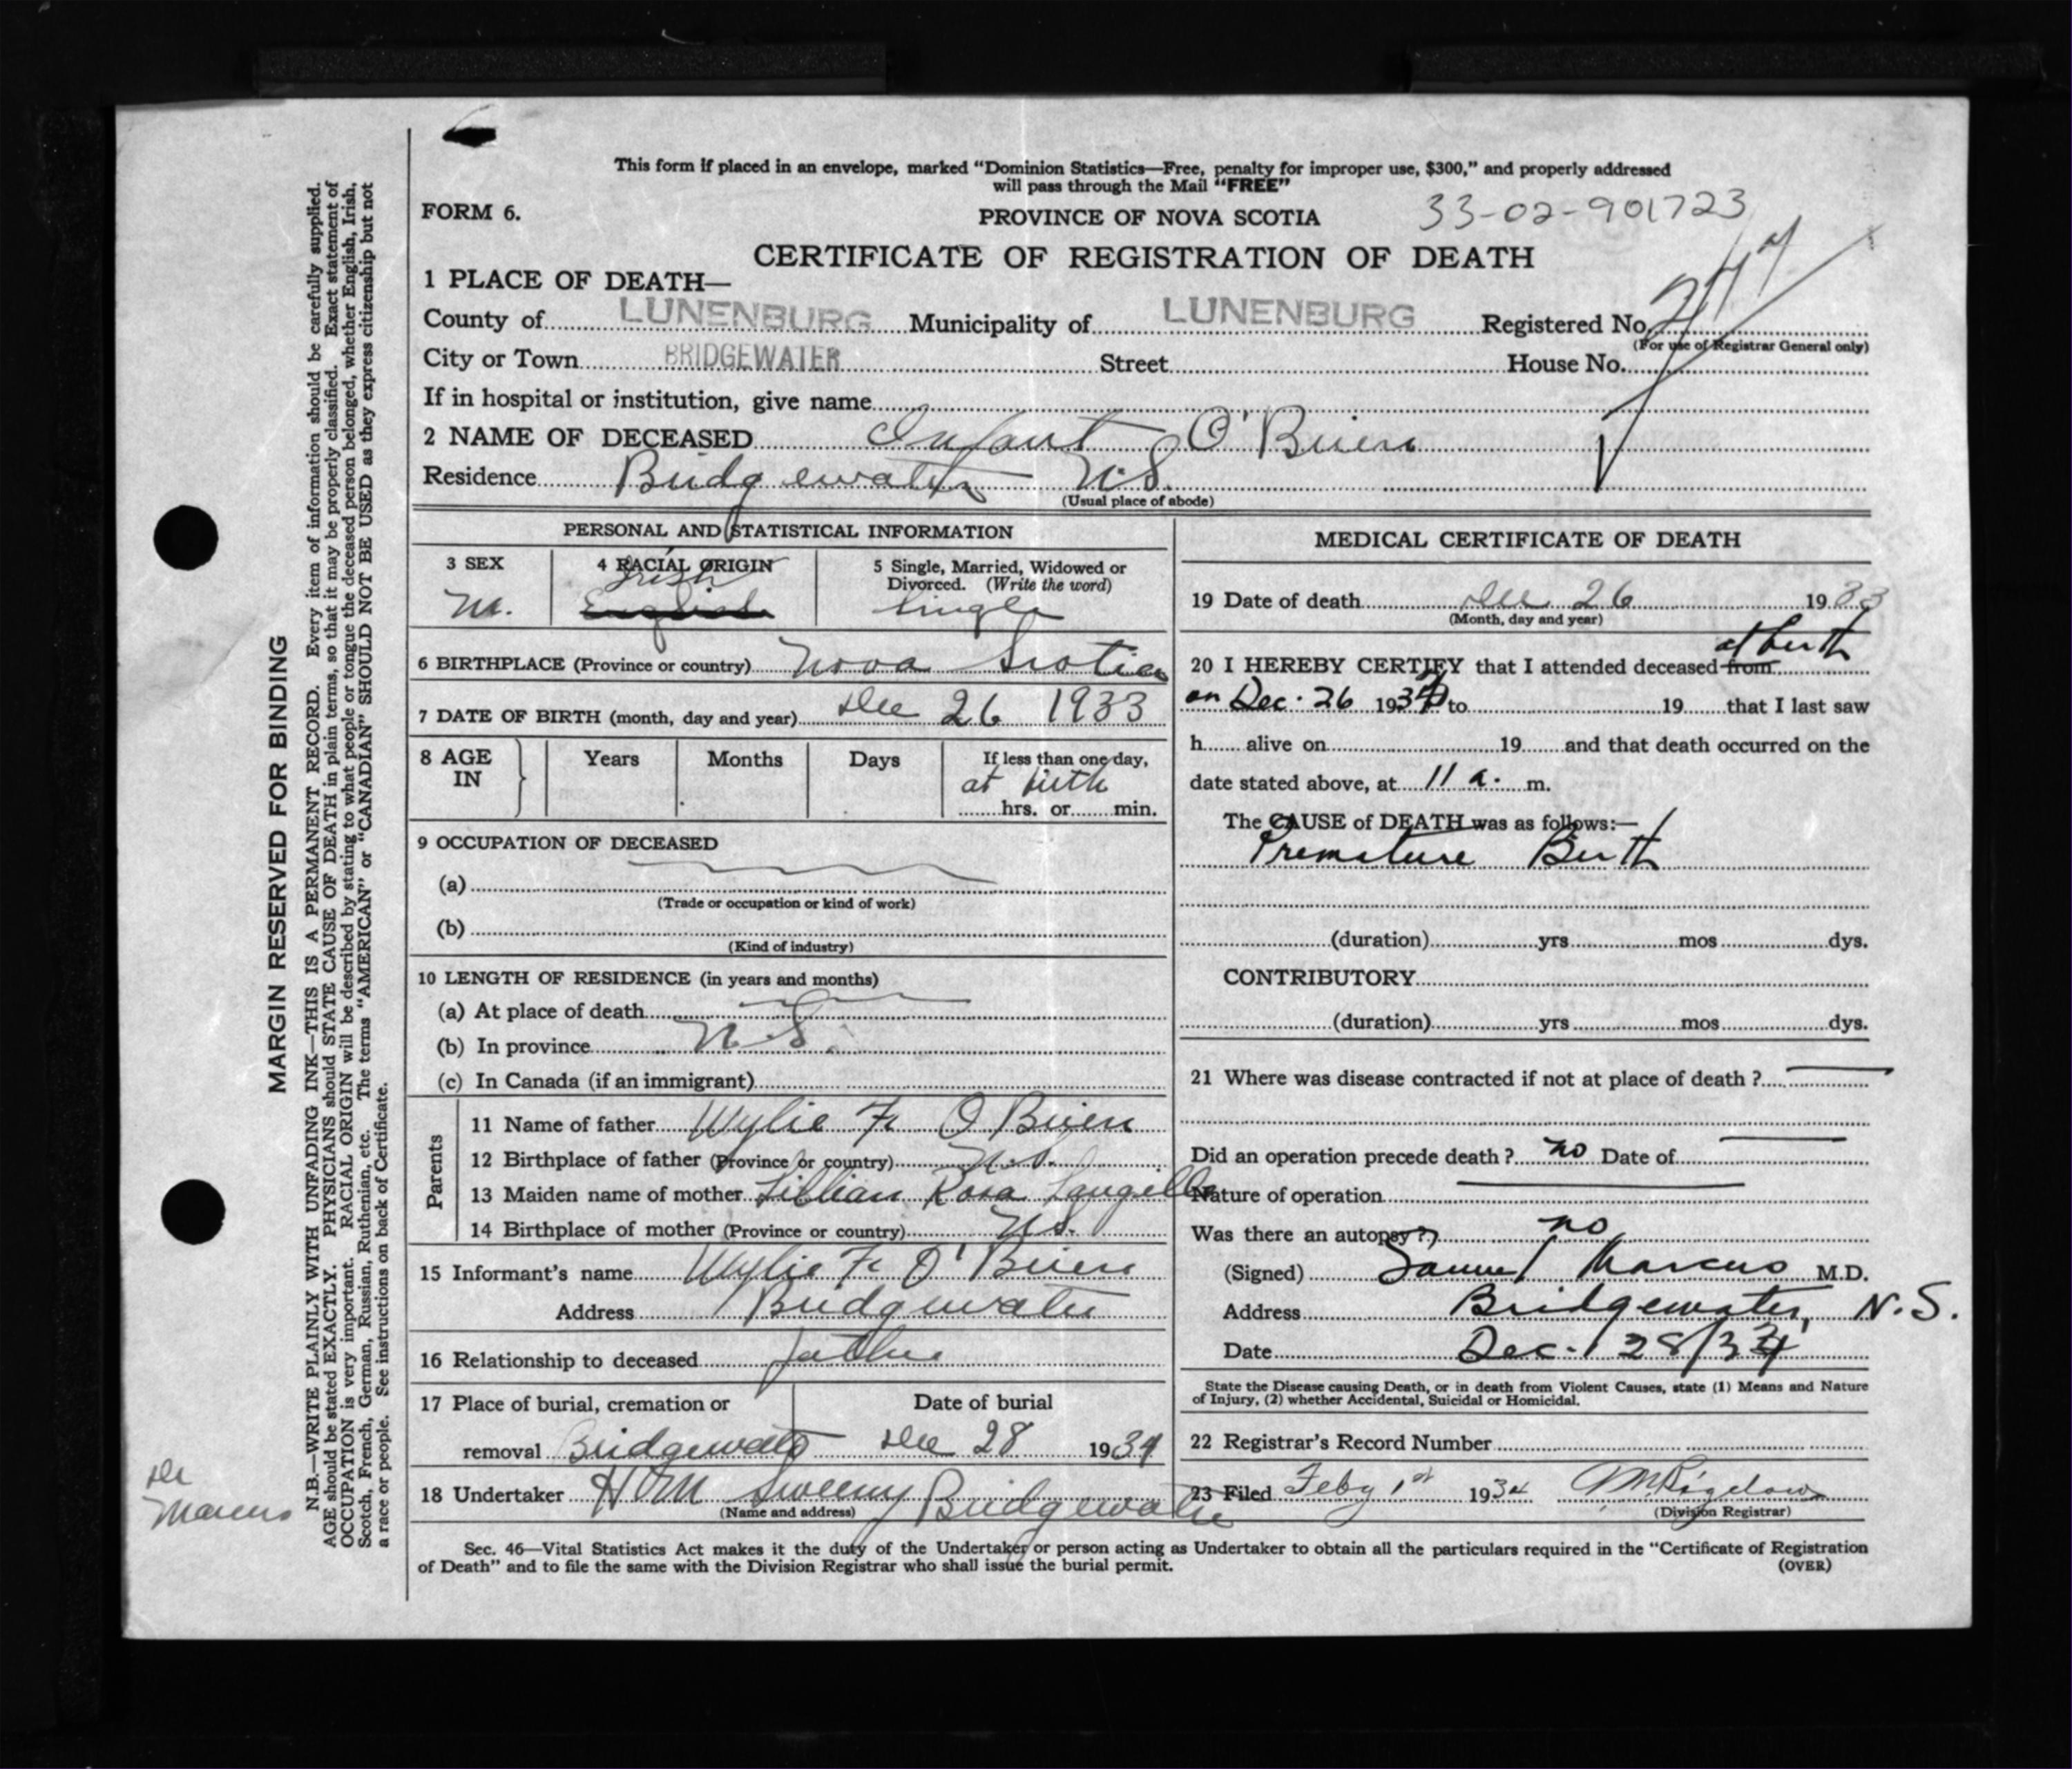 This form if placed in an envelope, marked "Dominion Statistics—Free, penalty for improper use, $300," and properly addressed
will pass through the Mail "FREE"
FORM 6.
PROVINCE OF NOVA SCOTIA
33-02-901723
CERTIFICATE OF REGISTRATION OF DEATH
1 PLACE OF DEATH—
County of LUNENBURG Municipality of LUNENBURG Registered No.
(For use of Registrar General only)
City or Town BRIDGEWATER Street House No.
If in hospital or institution, give name
2 NAME OF DECEASED Infant O'Brien
Residence Bridgewater N.S.
(Usual place of abode)
PERSONAL AND STATISTICAL INFORMATION
3 SEX
M.
4 RACIAL ORIGIN
Irish
English
5 Single, Married, Widowed or
Divorced. (Write the word)
Single
6 BIRTHPLACE (Province or country) Nova Scotia
7 DATE OF BIRTH (month, day and year) Dec 26 1933
8 AGE
IN
Years
Months
Days
If less than one day,
at birth
hrs. or min.
9 OCCUPATION OF DECEASED
(a)
(Trade or occupation or kind of work)
(b)
(Kind of industry)
10 LENGTH OF RESIDENCE (in years and months)
(a) At place of death
(b) In province N.S.
(c) In Canada (if an immigrant)
Parents
11 Name of father Wylie F. O Brien
12 Birthplace of father (Province or country) N.S.
13 Maiden name of mother Lillian Rosa Langelle
14 Birthplace of mother (Province or country) N.S.
15 Informant's name Wylie F. O'Brien
Address Bridgewater
16 Relationship to deceased father
17 Place of burial, cremation or
removal Bridgewater
Date of burial
Dec 28 1934
18 Undertaker Sweeny Bridgewater
(Name and address)
MEDICAL CERTIFICATE OF DEATH
19 Date of death Dec 26 1933
(Month, day and year)
at birth
20 I HEREBY CERTIFY that I attended deceased from
on Dec. 26 193 to 19 that I last saw
h alive on 19 and that death occurred on the
date stated above, at 11 a. m.
The CAUSE of DEATH was as follows:—
Premature Birth
(duration) yrs mos dys.
CONTRIBUTORY
(duration) yrs mos dys.
21 Where was disease contracted if not at place of death ?
Did an operation precede death ? no Date of
Nature of operation
Was there an autopsy ? no
(Signed) Samuel Marcus M.D.
Address Bridgewater, N.S.
Date Dec. 28/
State the Disease causing Death, or in death from Violent Causes, state (1) Means and Nature
of Injury, (2) whether Accidental, Suicidal or Homicidal.
22 Registrar's Record Number
23 Filed Feby 1st 1934
(Division Registrar)
Sec. 46—Vital Statistics Act makes it the duty of the Undertaker or person acting as Undertaker to obtain all the particulars required in the "Certificate of Registration
of Death" and to file the same with the Division Registrar who shall issue the burial permit.
(OVER)
MARGIN RESERVED FOR BINDING
N.B.—WRITE PLAINLY WITH UNFADING INK—THIS IS A PERMANENT RECORD. Every item of information should be carefully supplied.
AGE should be stated EXACTLY. PHYSICIANS should STATE CAUSE OF DEATH in plain terms, so that it may be properly classified. Exact statement of
OCCUPATION is very important. RACIAL ORIGIN will be described by stating to what people or tongue the deceased person belonged, whether English, Irish,
Scotch, French, German, Russian, Ruthenian, etc. The terms "AMERICAN" or "CANADIAN" SHOULD NOT BE USED as they express citizenship but not
a race or people. See instructions on back of Certificate.
Dr
Marcus